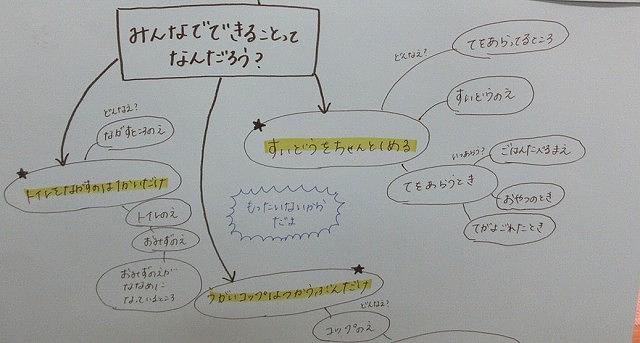 みんなでできることって
なんだろう?
どんなえ?
てをあらってるところ
すいどうのえ
★
すいどうをちゃんとしめる
いつあらう?
ごはんたべるまえ
てをあらうとき
おやつのとき
てがよごれたとき
どんなえ?
ながすところのえ
★
トイレをながすのは1かいだけ
トイレのえ
おみずのえ
おみずのえが
ななめに
なっているところ
もったいないから
だよ
★
うがいコップはつかうぶんだけ
どんなえ?
コップのえ